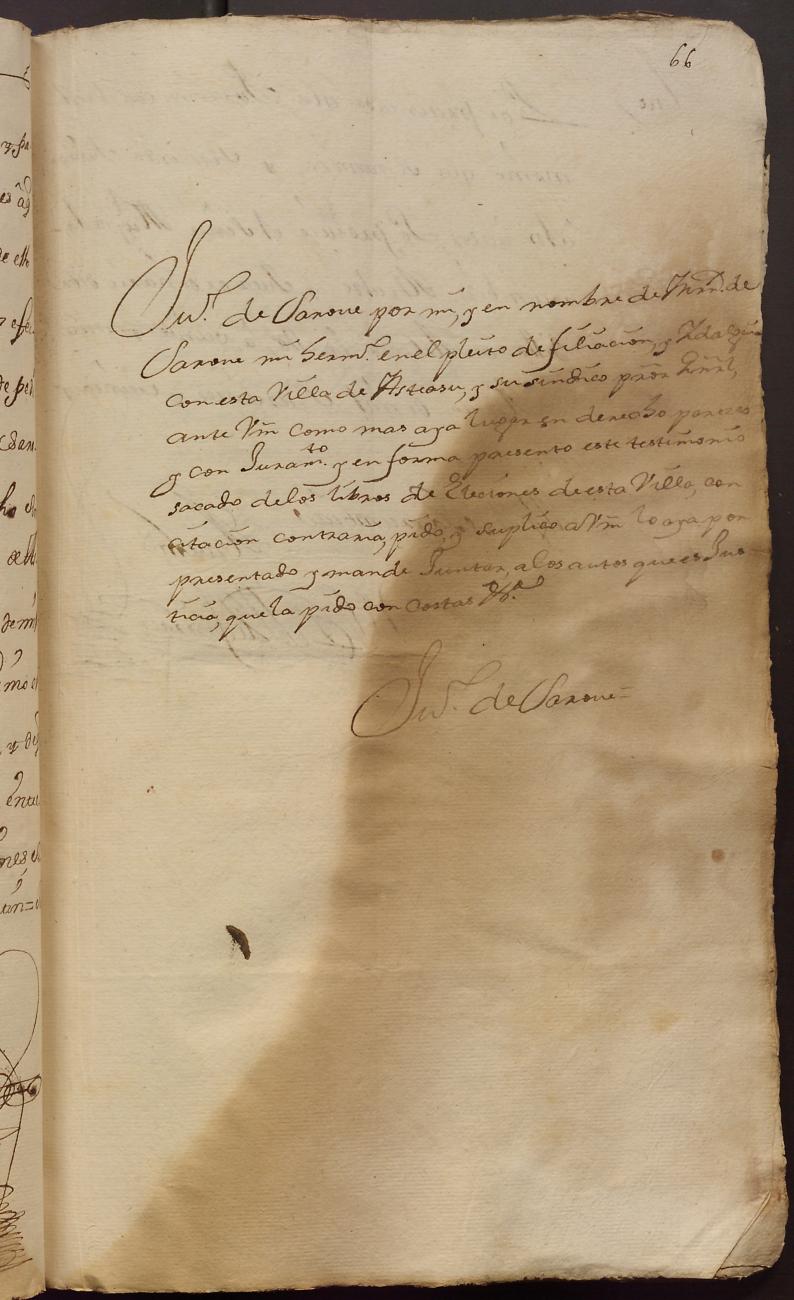 66
Ju.º de Sarove por mi, y en nombre de de
Sarove mi herm.º en el pleito de filiacion, y Idalguia
con esta Villa de Asteasu, y su sindico pror Gñral,
ante Vm como mas aya lugar en derecho parezco
y con Juram.to y en forma presento este testimonio
sacado delos libros de Eleciones de esta Villa, con
citacion contraria, pido, y suplico a Vm lo aya por
presentado y mande Juntar, a los autos que es Jus-
ticia, que la pido con costas &.ª
Ju.º de Sarove=